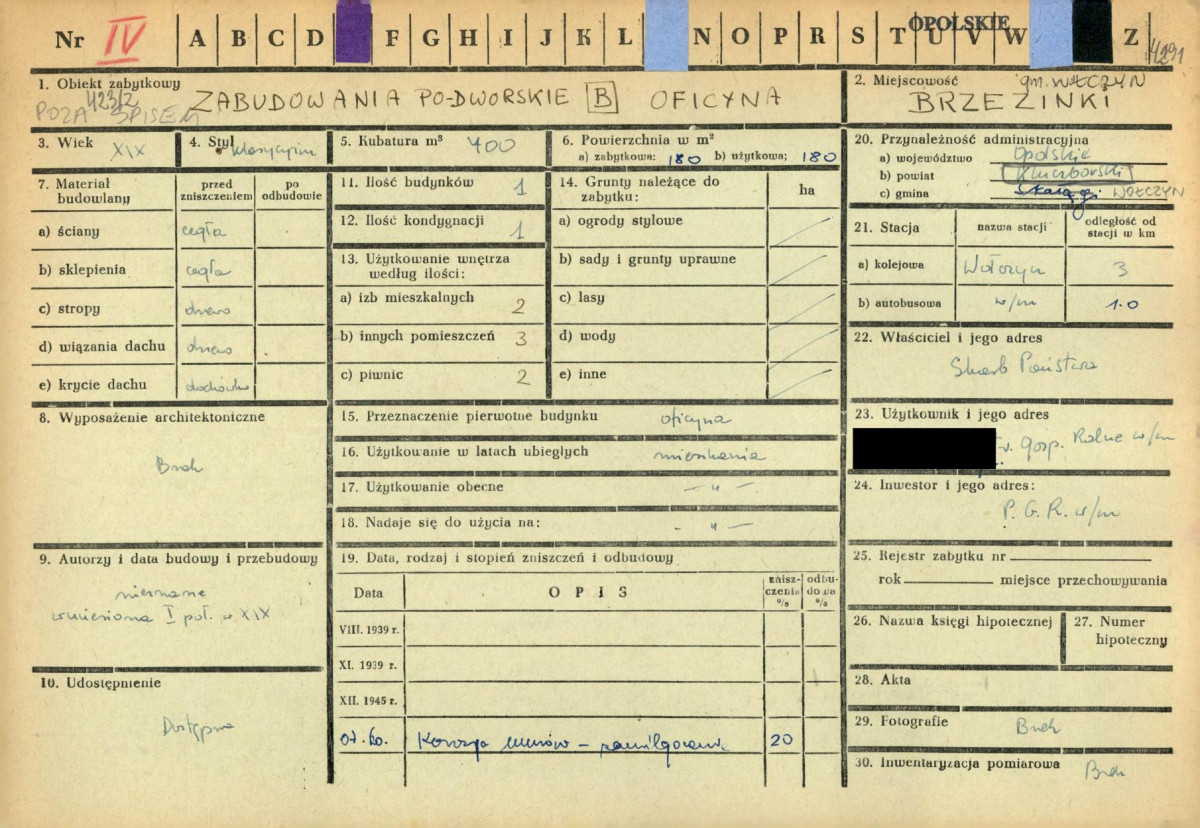 OPOLSKIE
Nr IV A B C D F G H I J K L N O P R S T U V W Z 4291
1. Obiekt zabytkowy ZABUDOWANIA PO-DWORSKIE B OFICYNA
423/2
POZA SPISEM
2. Miejscowość gm. WOŁCZYN
BRZEZINKI
3. Wiek XIX
4. Styl klasycyzm
5. Kubatura m³ 400
6. Powierzchnia w m²
a) zabytkowa: 180 b) użytkowa: 180
7. Materiał budowlany
przed zniszczeniem
po odbudowie
a) ściany cegła
b) sklepienia cegła
c) stropy drewo
d) wiązania dachu drewo
e) krycie dachu dachówka
8. Wyposażenie architektoniczne
Brak
9. Autorzy i data budowy i przebudowy
nieznane
wzniesiona I poł. w XIX
10. Udostępnienie
Dostępna
11. Ilość budynków 1
12. Ilość kondygnacji 1
13. Użytkowanie wnętrza
według ilości:
a) izb mieszkalnych 2
b) innych pomieszczeń 3
c) piwnic 2
14. Grunty należące do
zabytku:
ha
a) ogrody stylowe
b) sady i grunty uprawne
c) lasy
d) wody
e) inne
15. Przeznaczenie pierwotne budynku oficyna
16. Użytkowanie w latach ubiegłych mieszkania
17. Użytkowanie obecne — " —
18. Nadaje się do użycia na: — " —
19. Data, rodzaj i stopień zniszczeń i odbudowy
Data OPIS zniszczenia % odbudowa %
VIII. 1939 r.
XI. 1939 r.
XII. 1945 r.
07.60. Korozja murów – zawilgocenie 20
20. Przynależność administracyjna
a) województwo Opolskie
b) powiat Kluczborski
c) gmina Skałągi WOŁCZYN
21. Stacja
nazwa stacji
odległość od
stacji w km
a) kolejowa Wołczyn 3
b) autobusowa w/m 1.0
22. Właściciel i jego adres
Skarb Państwa
23. Użytkownik i jego adres
Gosp. Rolne w/m
24. Inwestor i jego adres:
P.G.R. w/m
25. Rejestr zabytku nr
rok miejsce przechowywania
26. Nazwa księgi hipotecznej
27. Numer
hipoteczny
28. Akta
29. Fotografie Brak
30. Inwentaryzacja pomiarowa Brak